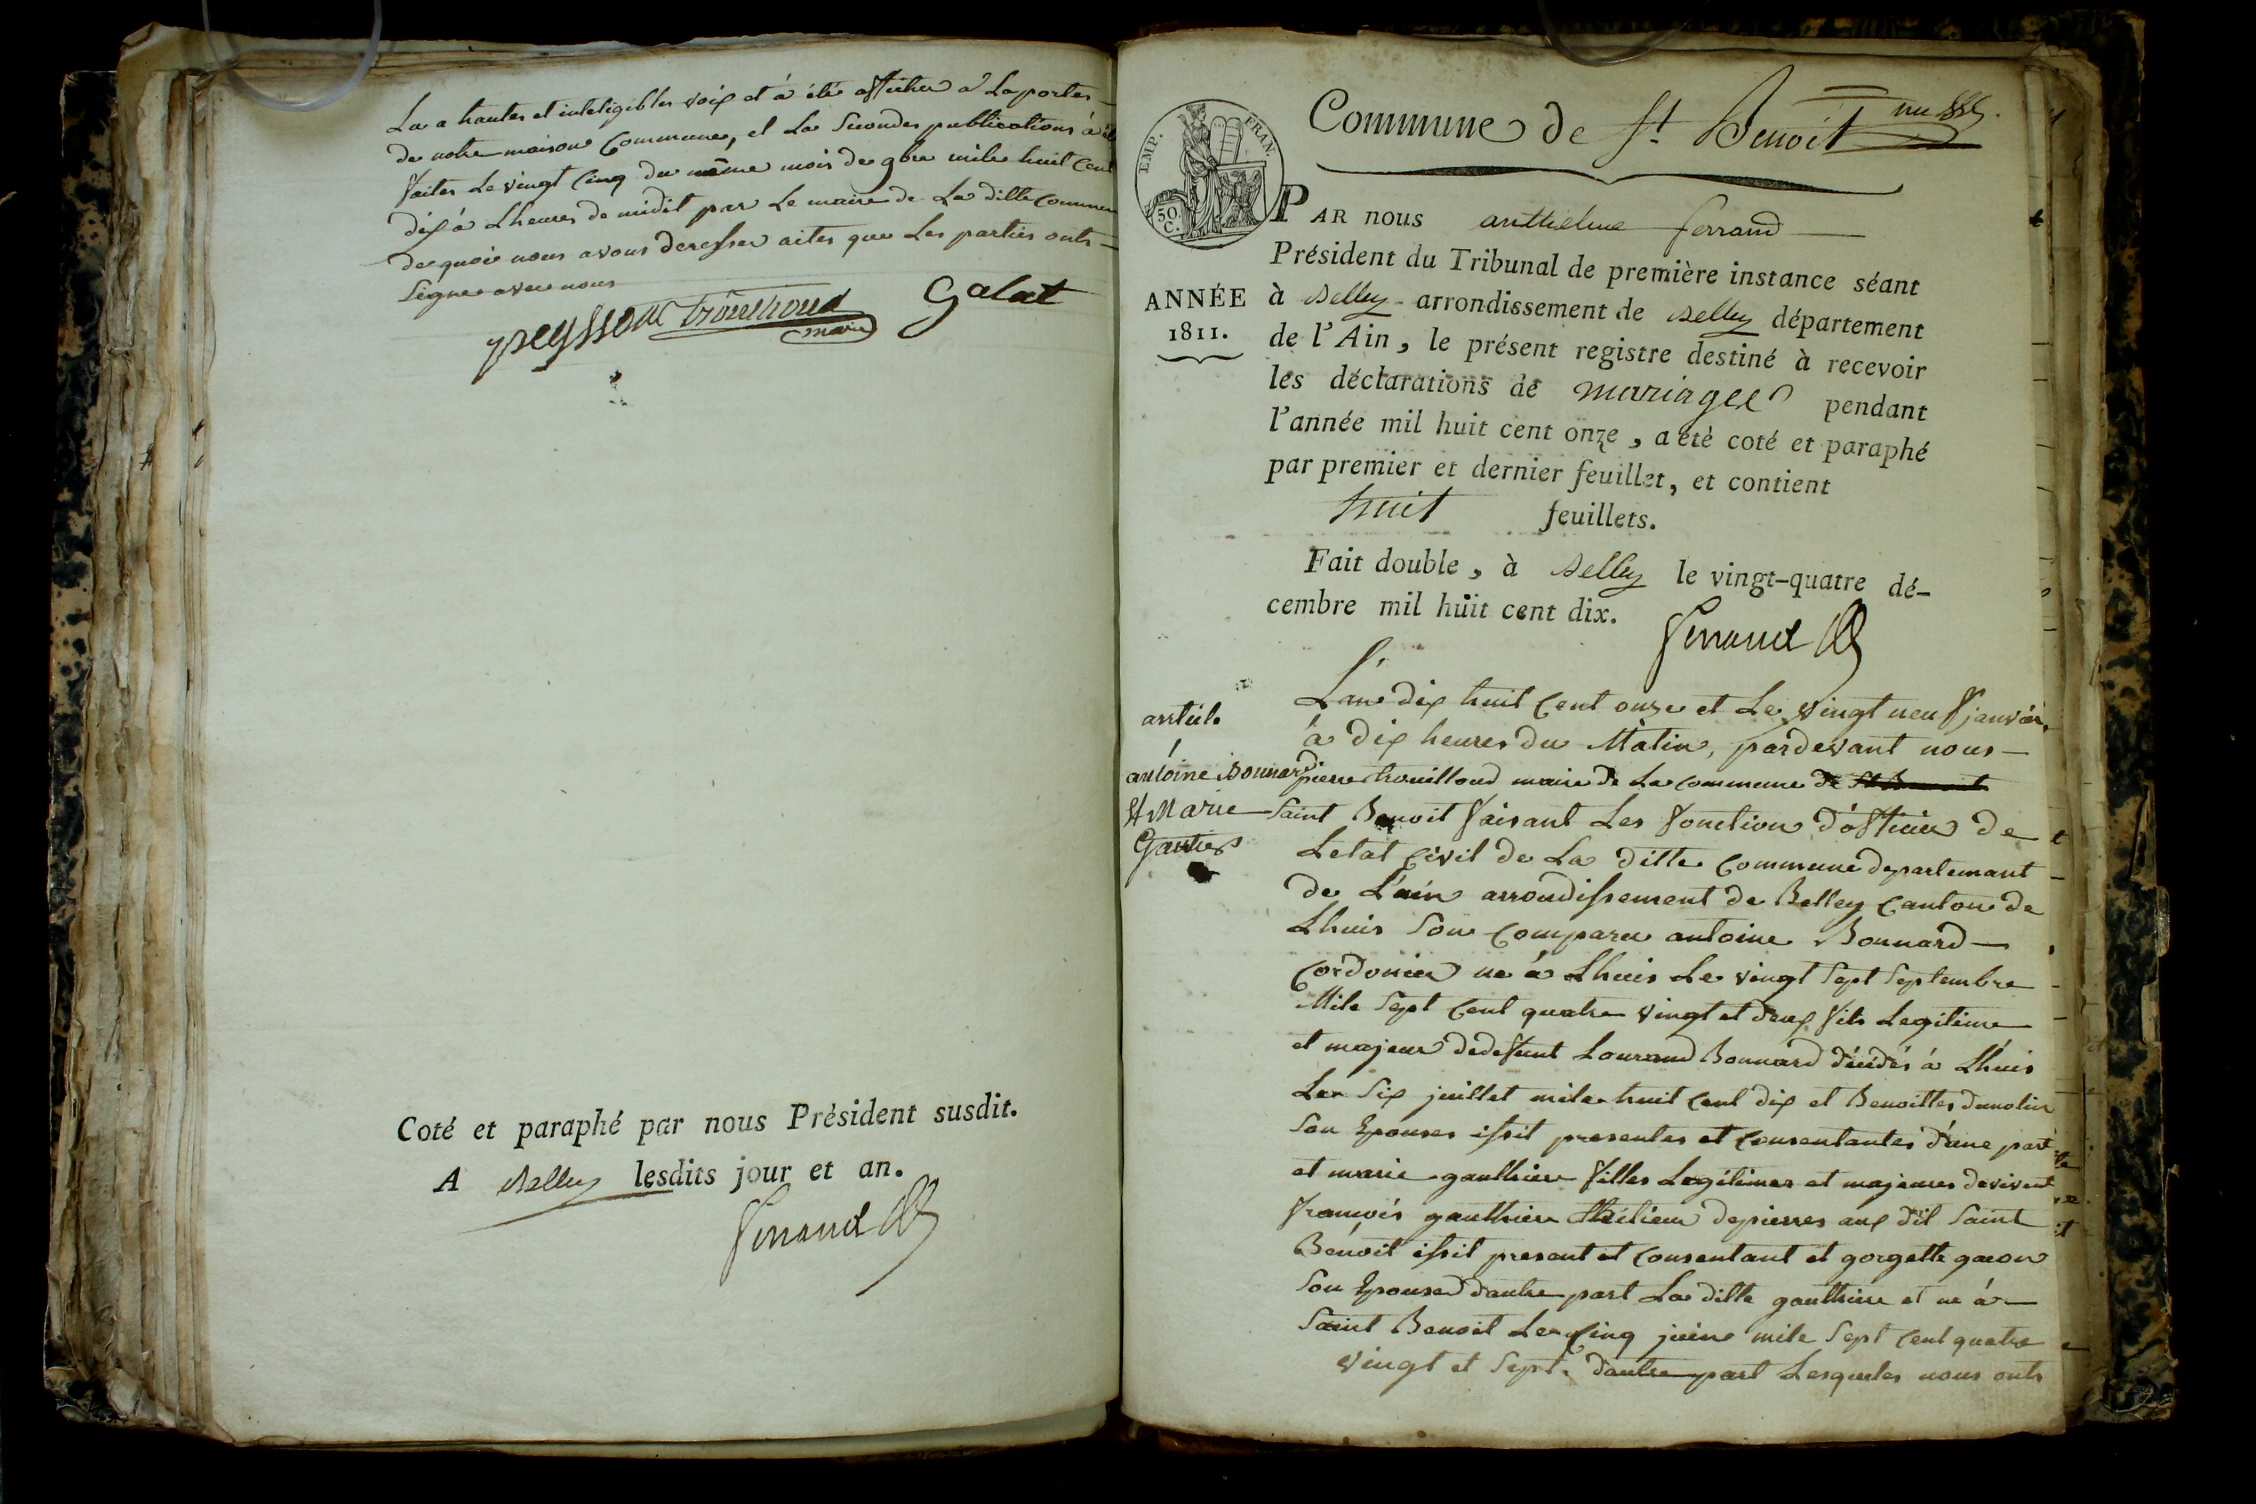 La a hautes et inteligibles voix et à été afficher a La portes
de notre maison Commune, et La Secondes publications à été
faites Le vingt Cinq du même mois de 9bre mile huit Cent
dix à Lheures de midit par Le maire de La ditte Commune
de quoi nous avons deresser actes que Les parties onts
Signe avec nous
peysson trouilloud Galat
maire
Coté et paraphé par nous Président susdit.
A Belley lesdits jour et an.
Ferrand
Commune de St Benoit
EMP. FRAN.
50 C.
PAR nous anthelme ferrand
Président du Tribunal de première instance séant
ANNÉE
1811.
à Belley arrondissement de Belley département
de l'Ain, le présent registre destiné à recevoir
les déclarations de mariages pendant
l'année mil huit cent onze, a été coté et paraphé
par premier et dernier feuillet, et contient
huit feuillets.
Fait double, à Belley le vingt-quatre dé-
cembre mil huit cent dix.
Ferrand
articl.
1
antoine Bonnard
et Marie
Gautier
L'an dix huit Cent onze et Le vingt neuf janvier
à dix heures du Matin, pardevant nous
pierre trouilloud maire de La commune de St Benoit
Saint Benoit faisant Les fonction d'officier de
Letat Civil de La ditte Commune departemant
de L'ain arrondissement de Belley Canton de
Lhuis Son Comparu antoine Bonnard
Cordonier ne à Lhuis Le vingt Sept Septembre
Mile Sept Cent quatre vingt et deux fils Legitime
et majeur dedefunt Lourand Bonnard décédés à Lhuis
Le Six juillet mile huit Cent dix et Benoittes dumolin
Son Epouses issit presentes et Consentantes d'une part
et marie gauthier filles Legitimes et majeures devivent
françois gauthier tailieur depierres aux dit Saint
Benoit issit present et Consentant et gorgette
Son Epouse dautre part La ditte gauthier et ne à
Saint Benoit Le Cinq juin mile Sept Cent quatre
vingt et Sept dautre part Lesqueles nous onts